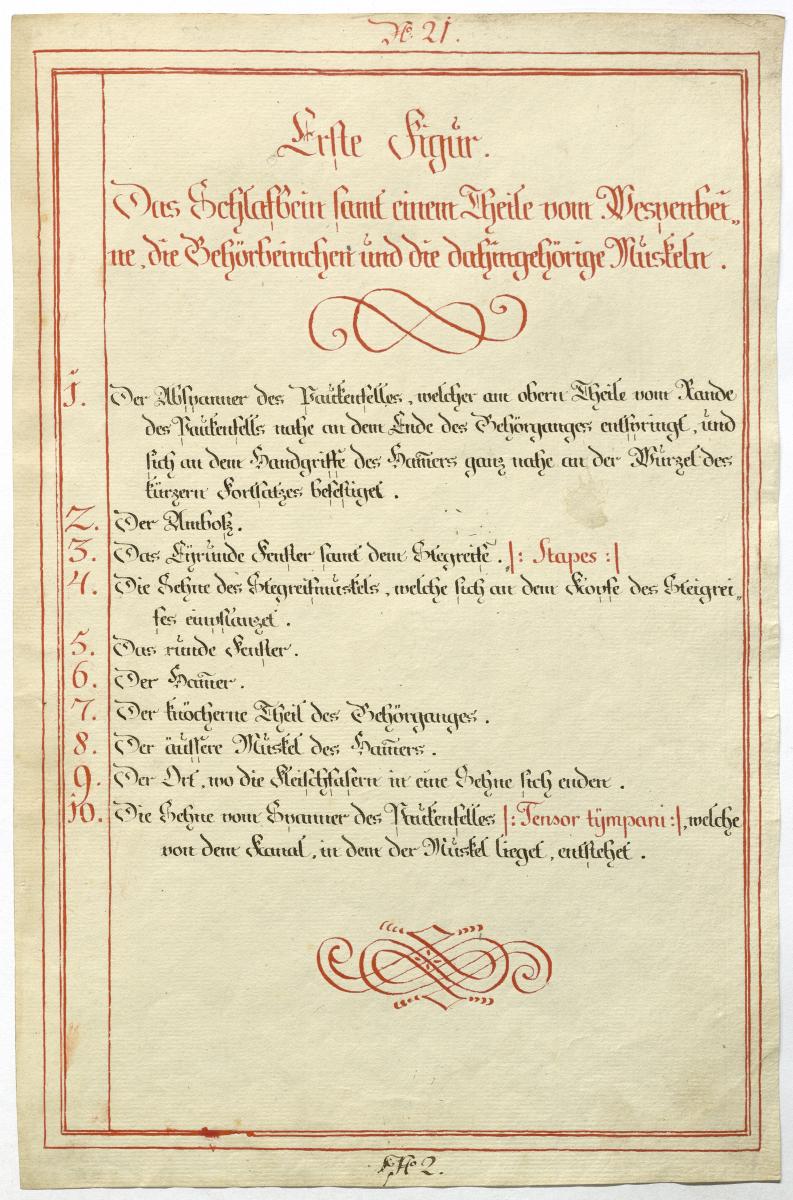 No. 21.
Erste Figur.
Das Schlafbein samt einem Theile vom Wespenbei„
ne, die Gehörbeinchen und die dahingehörige Muskeln.
1. Der Abspanner des Paukenfelles, welcher am obern Theile vom Rande
des Paukenfells nahe an dem Ende des Gehörganges entspringt, und
sich an dem Handgriffe des Ham̄ers ganz nahe an der Wurzel des
kürzern Fortsatzes befestiget.
2. Der Ambosz.
3. Das Eyrunde Fenster samt dem Stegreife. |: Stapes :|
4. Die Sehne des Stegreifmuskels, welche sich an dem Kopfe des Steigrei„
fes einpflanzet.
5. Das runde Fenster.
6. Der Ham̄er.
7. Der knöcherne Theil des Gehörganges.
8. Der äussere Muskel des Ham̄ers.
9. Der Ort, wo die Fleischfasern in eine Sehne sich enden.
10. Die Sehne vom Spanner des Paukenfelles |: Tensor tÿmpani :|, welche
von dem Kanal, in dem der Muskel lieget, entstehet.
No. 2.